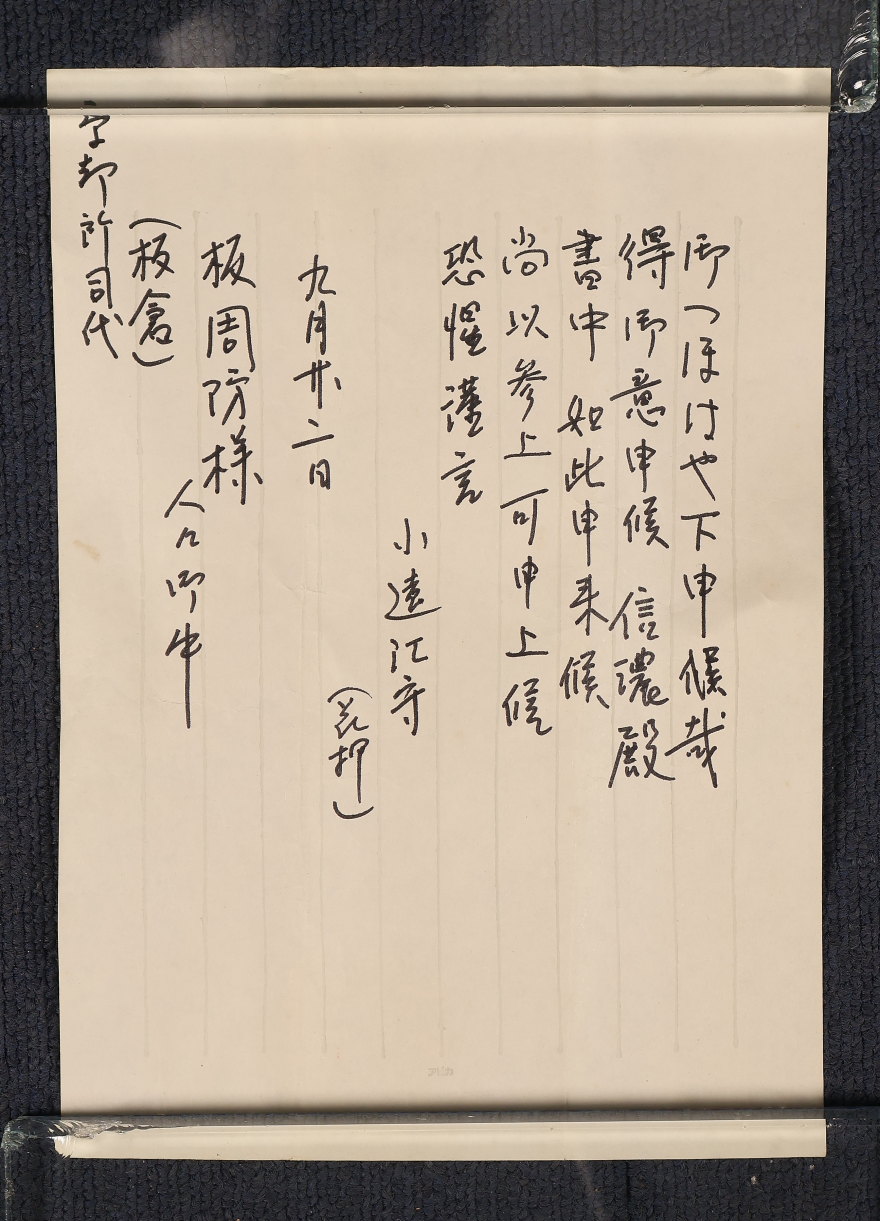 御つほはや下申候哉
得御意申候 信濃殿
書中 如此申来候
尚以参上可申上候
恐惶謹言
小遠江守
(花押)
九月廿二日
板周防様
人々御中
(板倉)
京都所司代